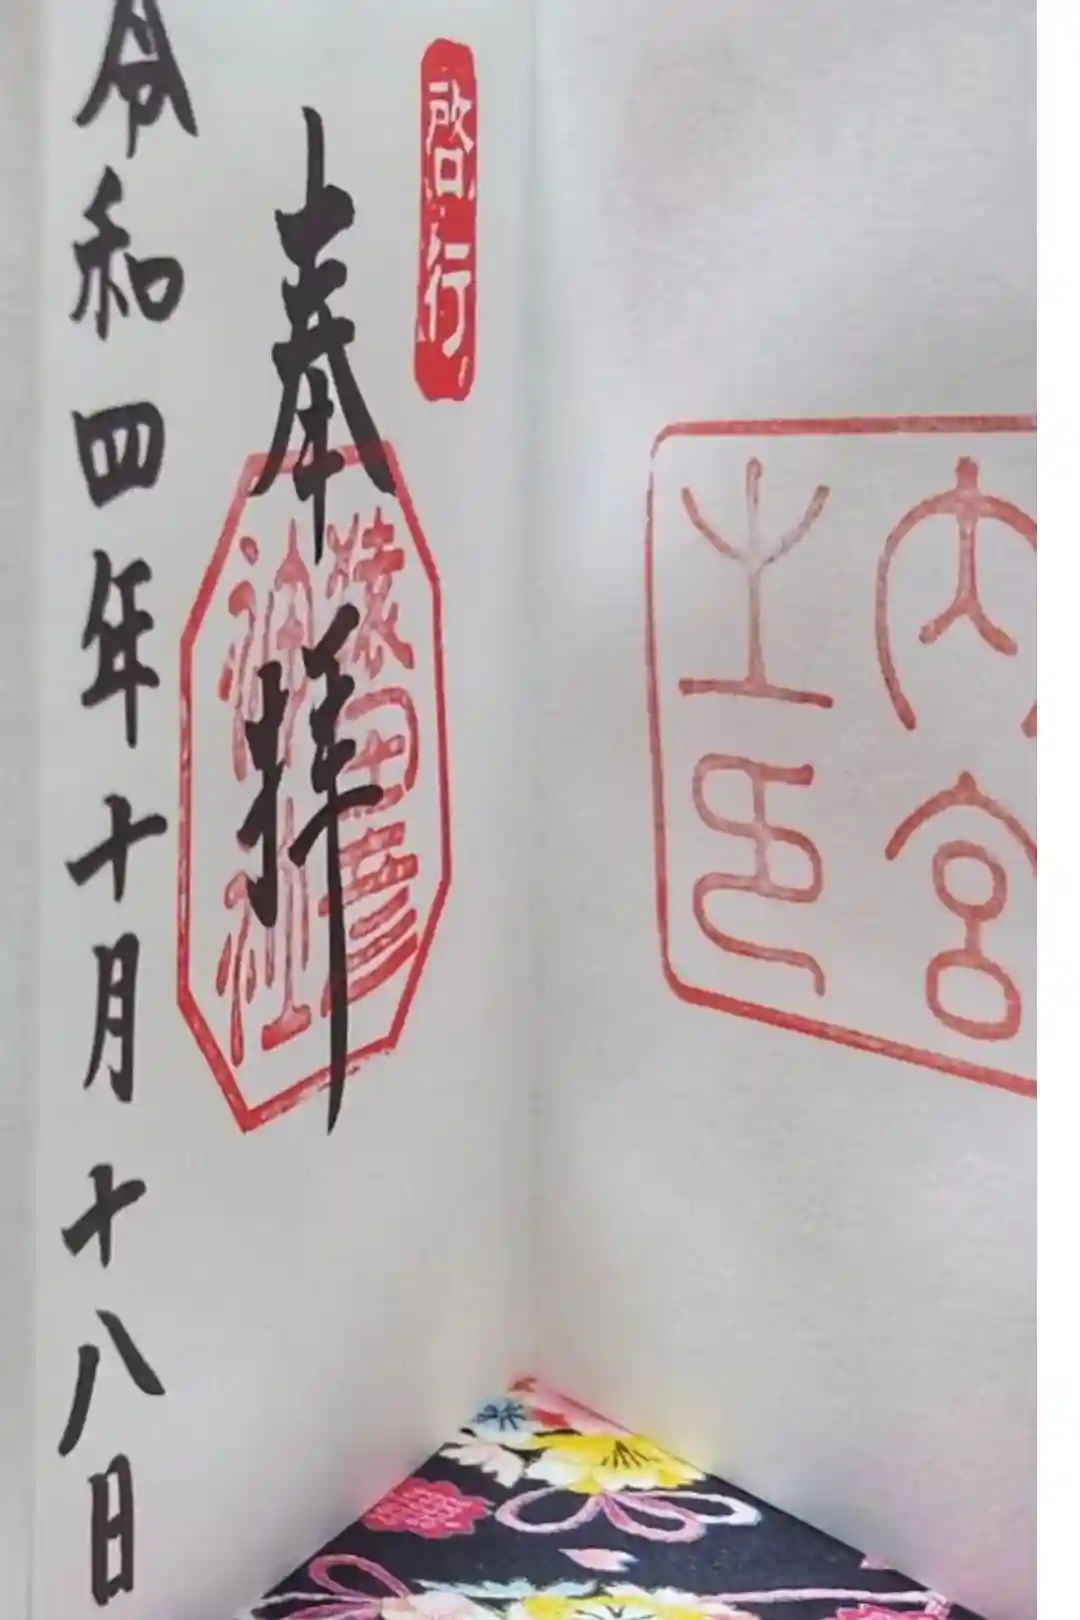 内宮
之印
啓行
奉拝
猿田彦
神社
令和四年十月十八日